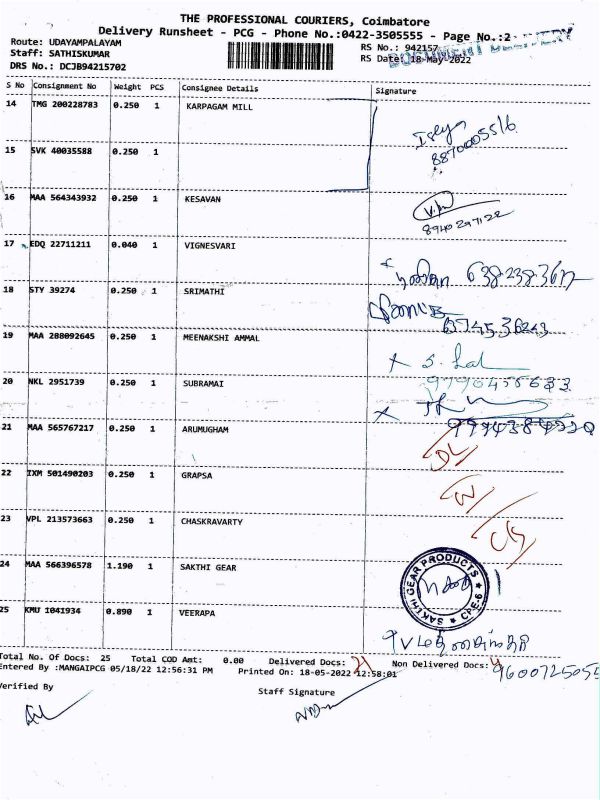 THE PROFESSIONAL COURIERS, Coimbatore
Delivery Runsheet - PCG - Phone No.:0422-3505555 - Page No.:2
DOCUMENT DELIVERY
Route: UDAYAMPALAYAM
RS No.: 942157
Staff: SATHISKUMAR
RS Date: 18-May-2022
DRS No.: DCJB94215702
S No Consignment No Weight PCS Consignee Details Signature
14 TMG 200228783 0.250 1 KARPAGAM MILL
8870005516
15 SVK 40035588 0.250 1
16 MAA 564343932 0.250 1 KESAVAN
8940297122
17 EDQ 22711211 0.040 1 VIGNESVARI
18 STY 39274 0.250 1 SRIMATHI
19 MAA 288092645 0.250 1 MEENAKSHI AMMAL
20 NKL 2951739 0.250 1 SUBRAMAI
21 MAA 565767217 0.250 1 ARUMUGHAM
DL
22 IXM 501490203 0.250 1 GRAPSA
23 VPL 213573663 0.250 1 CHASKRAVARTY
24 MAA 566396578 1.190 1 SAKTHI GEAR
SAKTHI GEAR PRODUCTS ★ CPE-6 ★
25 KMU 1041934 0.890 1 VEERAPA
Total No. Of Docs: 25 Total COD Amt: 0.00 Delivered Docs: 21 Non Delivered Docs: 4
9600725055
Entered By :MANGAIPCG 05/18/22 12:56:31 PM Printed On: 18-05-2022 12:58:01
Verified By
Staff Signature